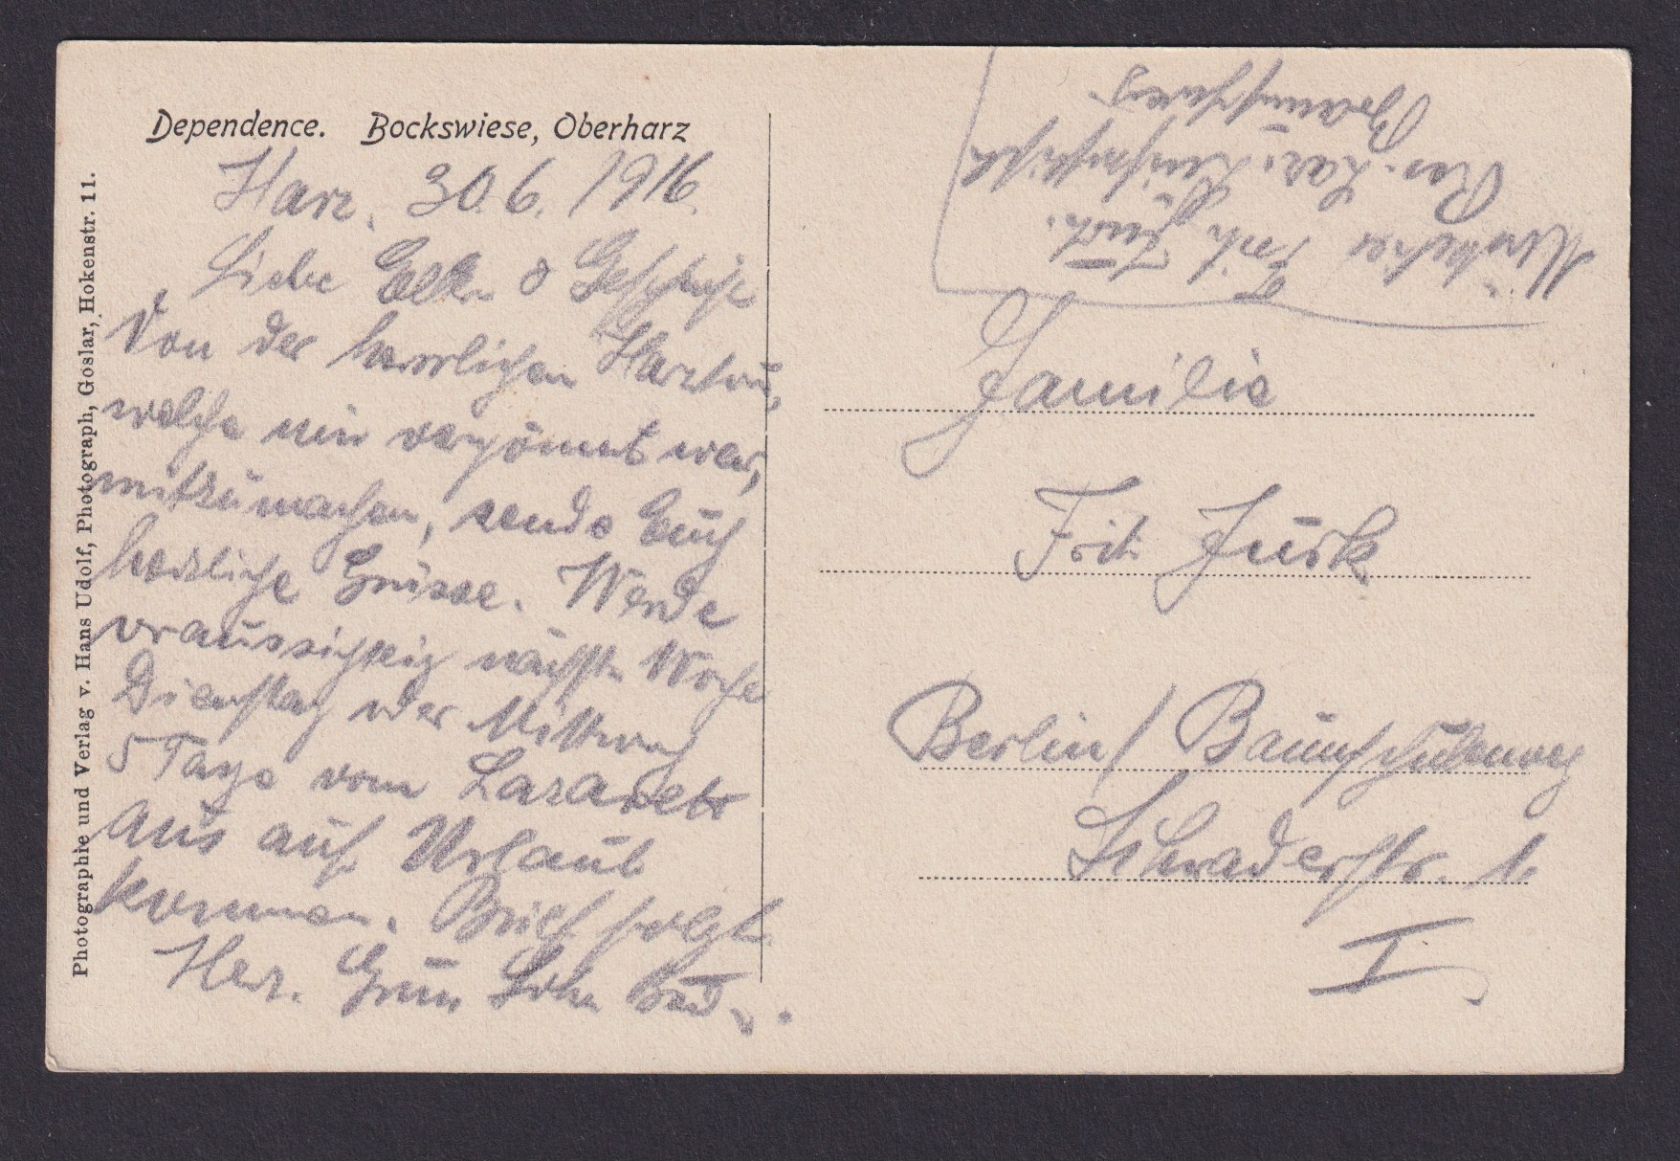 Dependence. Bockswiese, Oberharz
Harz, 30.6.1916.
Liebe Elt. & Geschwist.
Von der herrlichen Harztour,
welche mir vergönnt war,
mitzumachen, sende Euch
herzliche Grüsse. Werde
voraussichtlich nächste Woche
Dienstag oder Mittwoch
5 Tage vom Lazarett
aus auf Urlaub
kommen. Brief folgt.
Her. Grüss Sohn
Photographie und Verlag v. Hans Udolf, Photograph, Goslar, Hokenstr. 11.
Musketier Fritz Jurk.
Res. Laz.
Braunschweig.
Familie
Fritz Jurk
Berlin / Baumschulenweg
Schraderstr. 1.
I